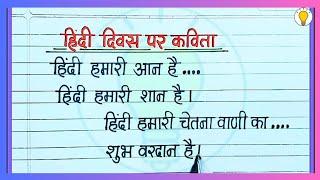 हिंदी दिवस पर कविता
हिंदी हमारी आन है ....
हिंदी हमारी शान है ।
हिंदी हमारी चेतना वाणी का ....
शुभ वरदान है।